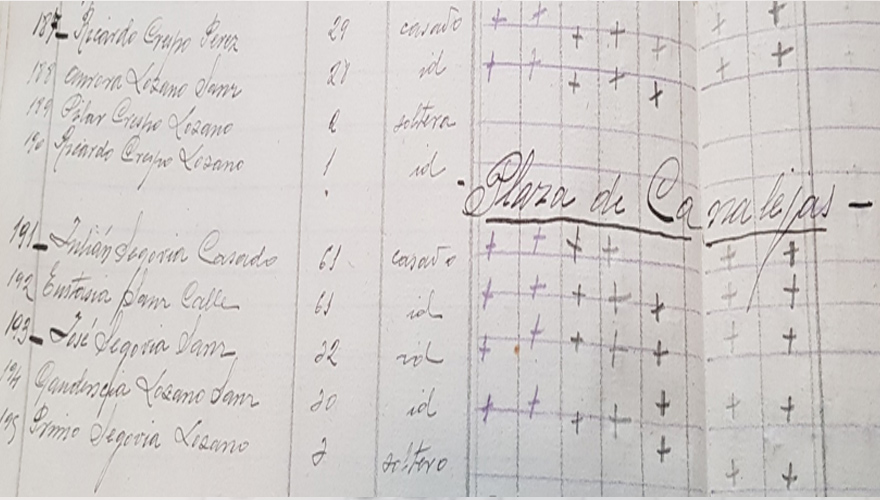 187 Ricardo Crespo Perez 29 casado
188 Aurora Lozano Sanz 28 id
189 Pilar Crespo Lozano soltera
190 Ricardo Crespo Lozano 1 id
Plaza de Canalejas
191 Julián Segovia Casado 61 casado
192 Eustasia Sanz Calle 61 id
193 José Segovia Sanz 32 id
194 Gaudencia Lozano Sanz 30 id
195 Primo Segovia Lozano soltero